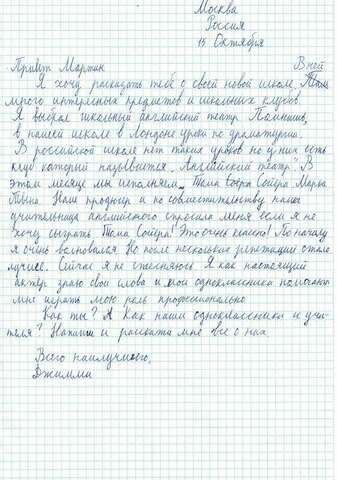 Москва
Россия
15 Октября
Привет Мартин
В ней
Я хочу рассказать тебе о своей новой школе.
много интересных предметов и школьных клубов
Я выбрал школьный английский театр. Помнишь,
в нашей школе в Лондоне уроки по драматургии.
В российской школе нет таких уроков но у них есть
клуб который называется „Английский театр." В
этом месяце мы исполняем „Тома Сойера Марка
Твена. Наш продюсер и по совместительству наша
учительница английского спросила меня если я не
хочу сыграть Тома Сойера! Это очень классно! По началу
я очень волновался. Но после нескольких репетиций стало
лучше. Сейчас я не стесняюсь. Я как настоящий
актёр знаю свои слова и мои одноклассники помогают
мне играть мою роль профессионально
Как ты? А Как наши одноклассники и учи-
теля? Напиши и раскажи мне все о них.
Всего наилучшего,
Джимми